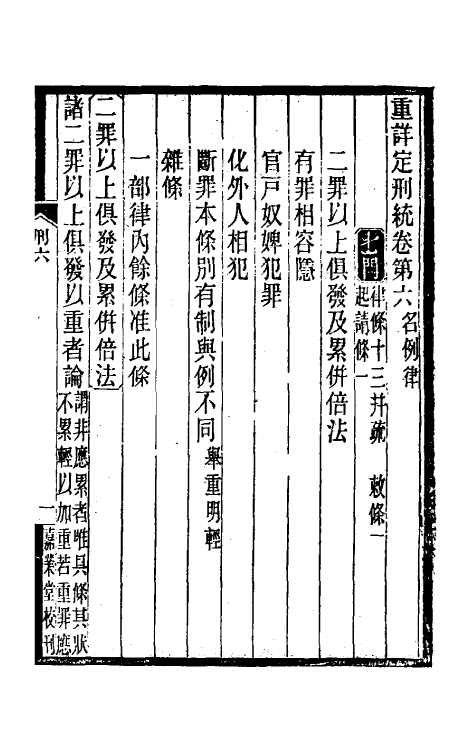 重詳定刑統卷第六名例律
七門律條十三并疏 敕條一
起請條一
二罪以上俱發及累併倍法
有罪相容隱
官戶奴婢犯罪
化外人相犯
斷罪本條別有制與例不同舉重明輕
雜條
一部律內餘條准此條
二罪以上俱發及累併倍法
諸二罪以上俱發以重者論謂非應累者唯具條其狀
不累輕以加重若重罪應
刑六
一
嘉業堂校刊